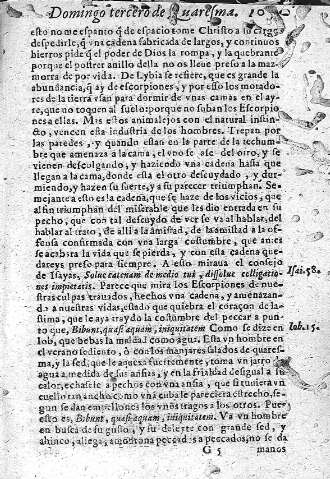 Domingo tercero de Quaresma.
esto no me espanto q̃ de espacio tome Christo lo largo
despedirle, q̃ vna cadena fabricada de largos, y continuos
hierros pide q̃ el poder de Dios la rompa, y la quebranto
porque el postrer anillo della no os lleue preso a la maz-
morra de por vida. De Lybia se refiere, que es grande la
abundancia, q̃ ay de escorpiones, y por esso los moradores
de la tierra vsan para dormir de vnas camas en el ay-
re, que no toquen al suelo porque no suban los Escorpio-
nes a ellas. Mas estos animalejos con el natural instin-
cto, vencen esta industria de los hombres. Trepan por
las paredes, y quando estan en la parte de la techumbre
que amenaza a la cama, el vno se ase del otro, y se
vienen descolgando, y haziendo vna cadena hasta que
llegan a la cama, donde esta el otro descuydado, y dur-
miendo, y hazen su suerte, y a su parecer triumphan. Se-
mejante a esto es la cadena, que se haze de los vicios, que
al fin triumphan del miserable que les dio entrada en su
pecho, que con tal descuydo de ver se va al hablar, del
hablar al trato, de alli a la amistad, de la amistad a la of-
fensa confirmada con vna larga costumbre, que antes
se acabara la vida que se pierda, y con esta cadena que-
dareys preso para siempre. A esto miraua el consejo
de Isayas, Solue catenam de medio tui, dissolue colligatio-
nes impietatis. Parece que mira los Escorpiones de nue-
stras culpas trauados, hechos vna cadena, y amenazan-
do a nuestras vidas, estado que quiebra el coraçon de las-
tima, que le aya traydo la costumbre del peccar a pun-
to que, Bibunt, quasi aquam, iniquitatem. Como se dize en
Iob, que bebas la maldad como agua. Esta vn hombre en
el verano sediento, ò con los manjares salados de quares-
ma, y la sed, que le aquexa fuertemente, toma vn jarro
agua a medida de sus ansias, y en la frialdad desigual a su
calor, echasele a pechos con vna ansia, que si tuuiera vn
cuello tan ancho como vna cuba le pareciera estrecho, se-
gun se dan empellones los vnos tragos a los otros. Pues
esto es, Bibunt, quasi aquam, iniquitatem. Va vn hombre
en busca de su gusto, y su deleyte con grande sed, y
ahinco, allega, amontona peccados a peccados, no se da
G 5 manos
Isai. 58.
Iob. 15.